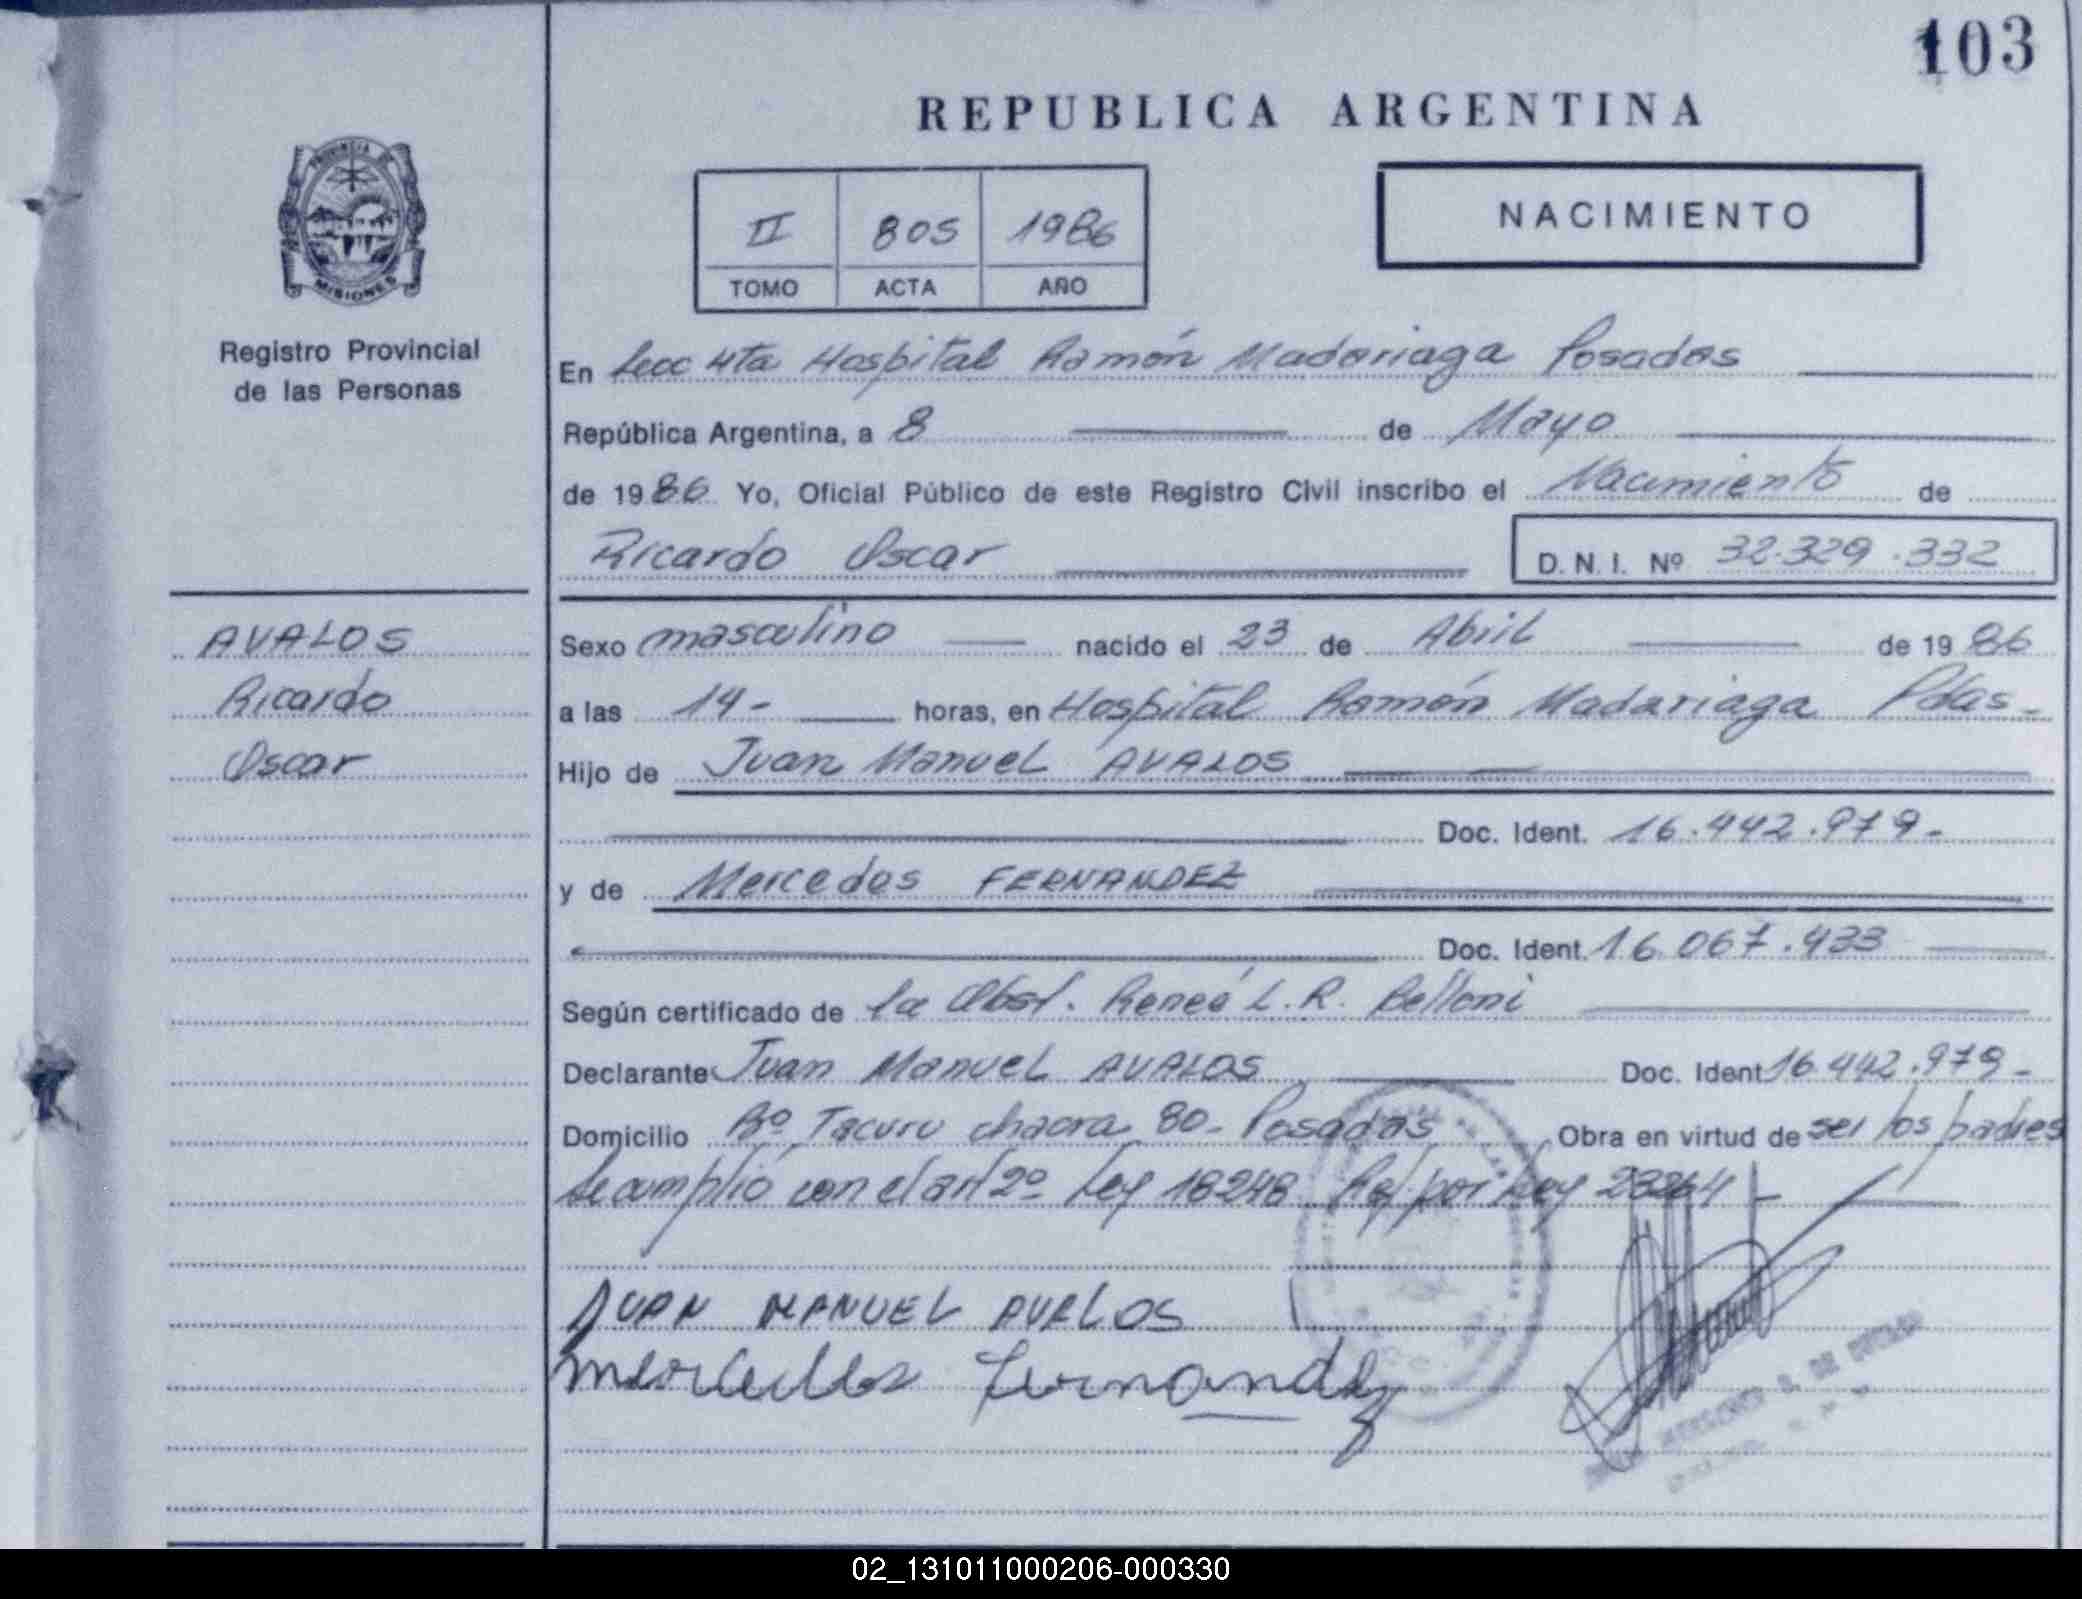 103
REPUBLICA ARGENTINA
PROVINCIA DE
MISIONES
Registro Provincial
de las Personas
II 805 1986
TOMO ACTA AÑO
NACIMIENTO
En Secc 4ta Hospital Ramón Madariaga Posadas
República Argentina, a 8 de Mayo
de 1986 Yo, Oficial Público de este Registro Civil inscribo el Nacimiento de
Ricardo Oscar D. N. I. Nº 32.329.332
AVALOS
Ricardo
Oscar
Sexo masculino nacido el 23 de Abril de 1986
a las 14- horas, en Hospital Ramón Madariaga Pdas-
Hijo de Juan Manuel AVALOS
Doc. Ident. 16.442.979-
y de Mercedes FERNANDEZ
Doc. Ident. 16.067.433
Según certificado de la Obst. Reneé L. R. Belloni
Declarante Juan Manuel AVALOS Doc. Ident 16.442.979-
Domicilio Bº Tacuru chacra 80- Posadas Obra en virtud de ser los padres
Se cumplió con el art 2º Ley 18248 Ref por Ley 23264-
JUAN MANUEL AVALOS
mercedes fernandez
02_131011000206-000330